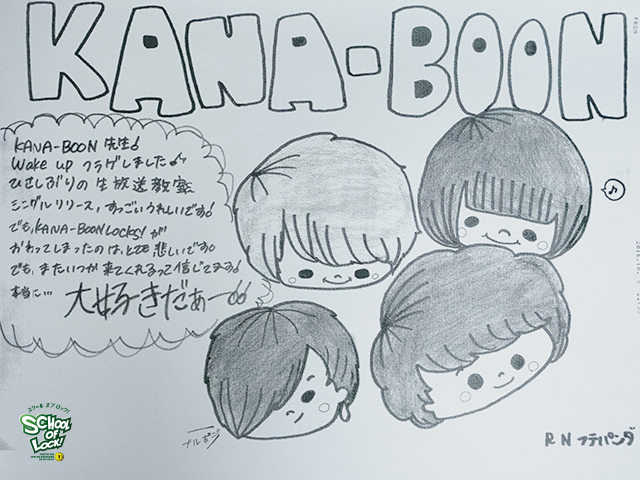 KANA-BOON
KANA-BOON 先生♪
Wake up フラゲしました♪
ひさしぶりの生放送教室
シングルリリース、すっごいうれしいです!
でも、KANA-BOON LOCKS!が
おわってしまったのは、とても悲しいです。
でも、またいつか来てくれるって信じてます!
本当に…
大好きだぁー!!
♪
スクール オブ ロック!
SCHOOL
OF
LOCK!
R N フデパンダ
FROM